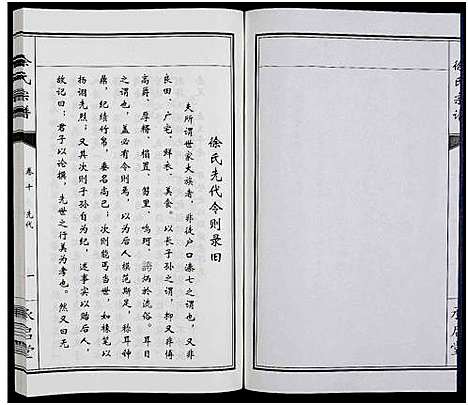 徐氏宗谱
承启堂
徐氏先代令则录旧
夫所谓世家大族者，非徒户口溱七之谓也，又非
良田、广宅、鲜衣、美食。以长子孙之谓，抑又非博
高爵、厚糈、榅置、匋里、鸣珂、
炳于流俗。耳目
之谓也，盖必有令则焉，以为后人模范斯足，称耳钟
鼎，纪绩竹帛，垂名高已；次则能丐当世，如椽笔以
扬诩先烈；又其次则子孙自为纪，述事实以贻后人，
故记曰：君子以论撰，先世之行美为孝也。然又曰无
徐氏宗谱
卷十
先代
一
承启堂